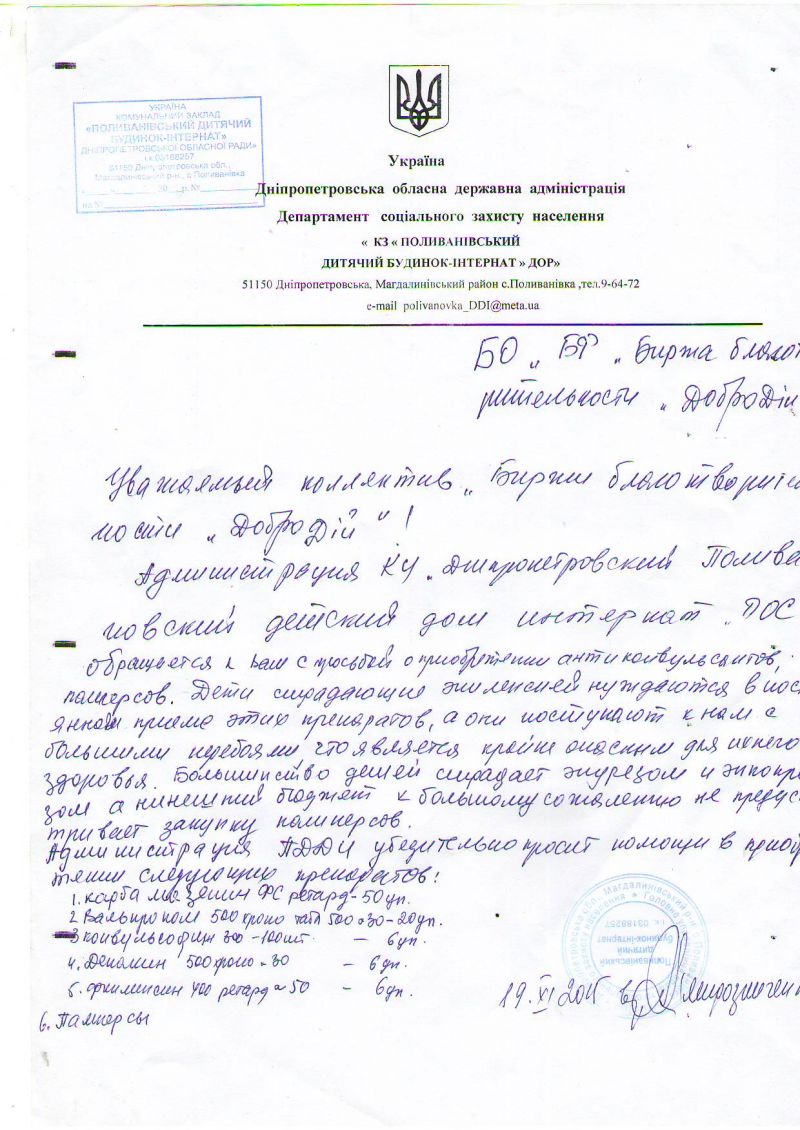 УКРАЇНА
КОМУНАЛЬНИЙ ЗАКЛАД
«ПОЛИВАНІВСЬКИЙ ДИТЯЧИЙ
БУДИНОК-ІНТЕРНАТ»
ДНІПРОПЕТРОВСЬКОЇ ОБЛАСНОЇ РАДИ»
і.к.03188257
51150 Дніпропетровська обл.,
Магдалинівський р-н., с Поливанівка
20 р. №
на №
Україна
Дніпропетровська обласна державна адміністрація
Департамент соціального захисту населення
« КЗ « ПОЛИВАНІВСЬКИЙ
ДИТЯЧИЙ БУДИНОК-ІНТЕРНАТ » ДОР»
51150 Дніпропетровська, Магдалинівський район с.Поливанівка ,тел.9-64-72
e-mail polivanovka_DDI@meta.ua
БО „ БФ „ Биржа благот
рительности „ ДоброДій
Уважаемый коллектив „ Биржи благотворител
ности „ ДоброДій " !
Администрация КУ „ Днипропетровский Полива
новский детский дом интернат „ ДОС
обращается к вам с просьбой о приобретении антиконвульсантов,
памперсов. Дети страдающие эпилепсией нуждаются в пост
янном приеме этих препаратов, а они поступают к нам с
большими перебоями, что является крайне опасным для их
здоровья. Большинство детей страдает энурезом и энкопре
зом а нинешний бюджет к большому сожалению не предус
тривает закупку памперсов.
Администрация ПДДИ убедительно просит помощи в приоб
тении следующих препаратов:
1. карбамазепин ФС ретард - 50 уп.
2 Вальпроком 500 хроно табл 500 ×30 - 20 уп.
3 конвульсофин 300 - 100 шт. — 6 уп.
4. Депакин 500 хроно × 30 — 6 уп.
5. 400 ретард × 50 — 6 уп.
6. Памперсы
19. XI 2015
Поливанівський
дитячий
будинок-інтернат
і.к. 03188257